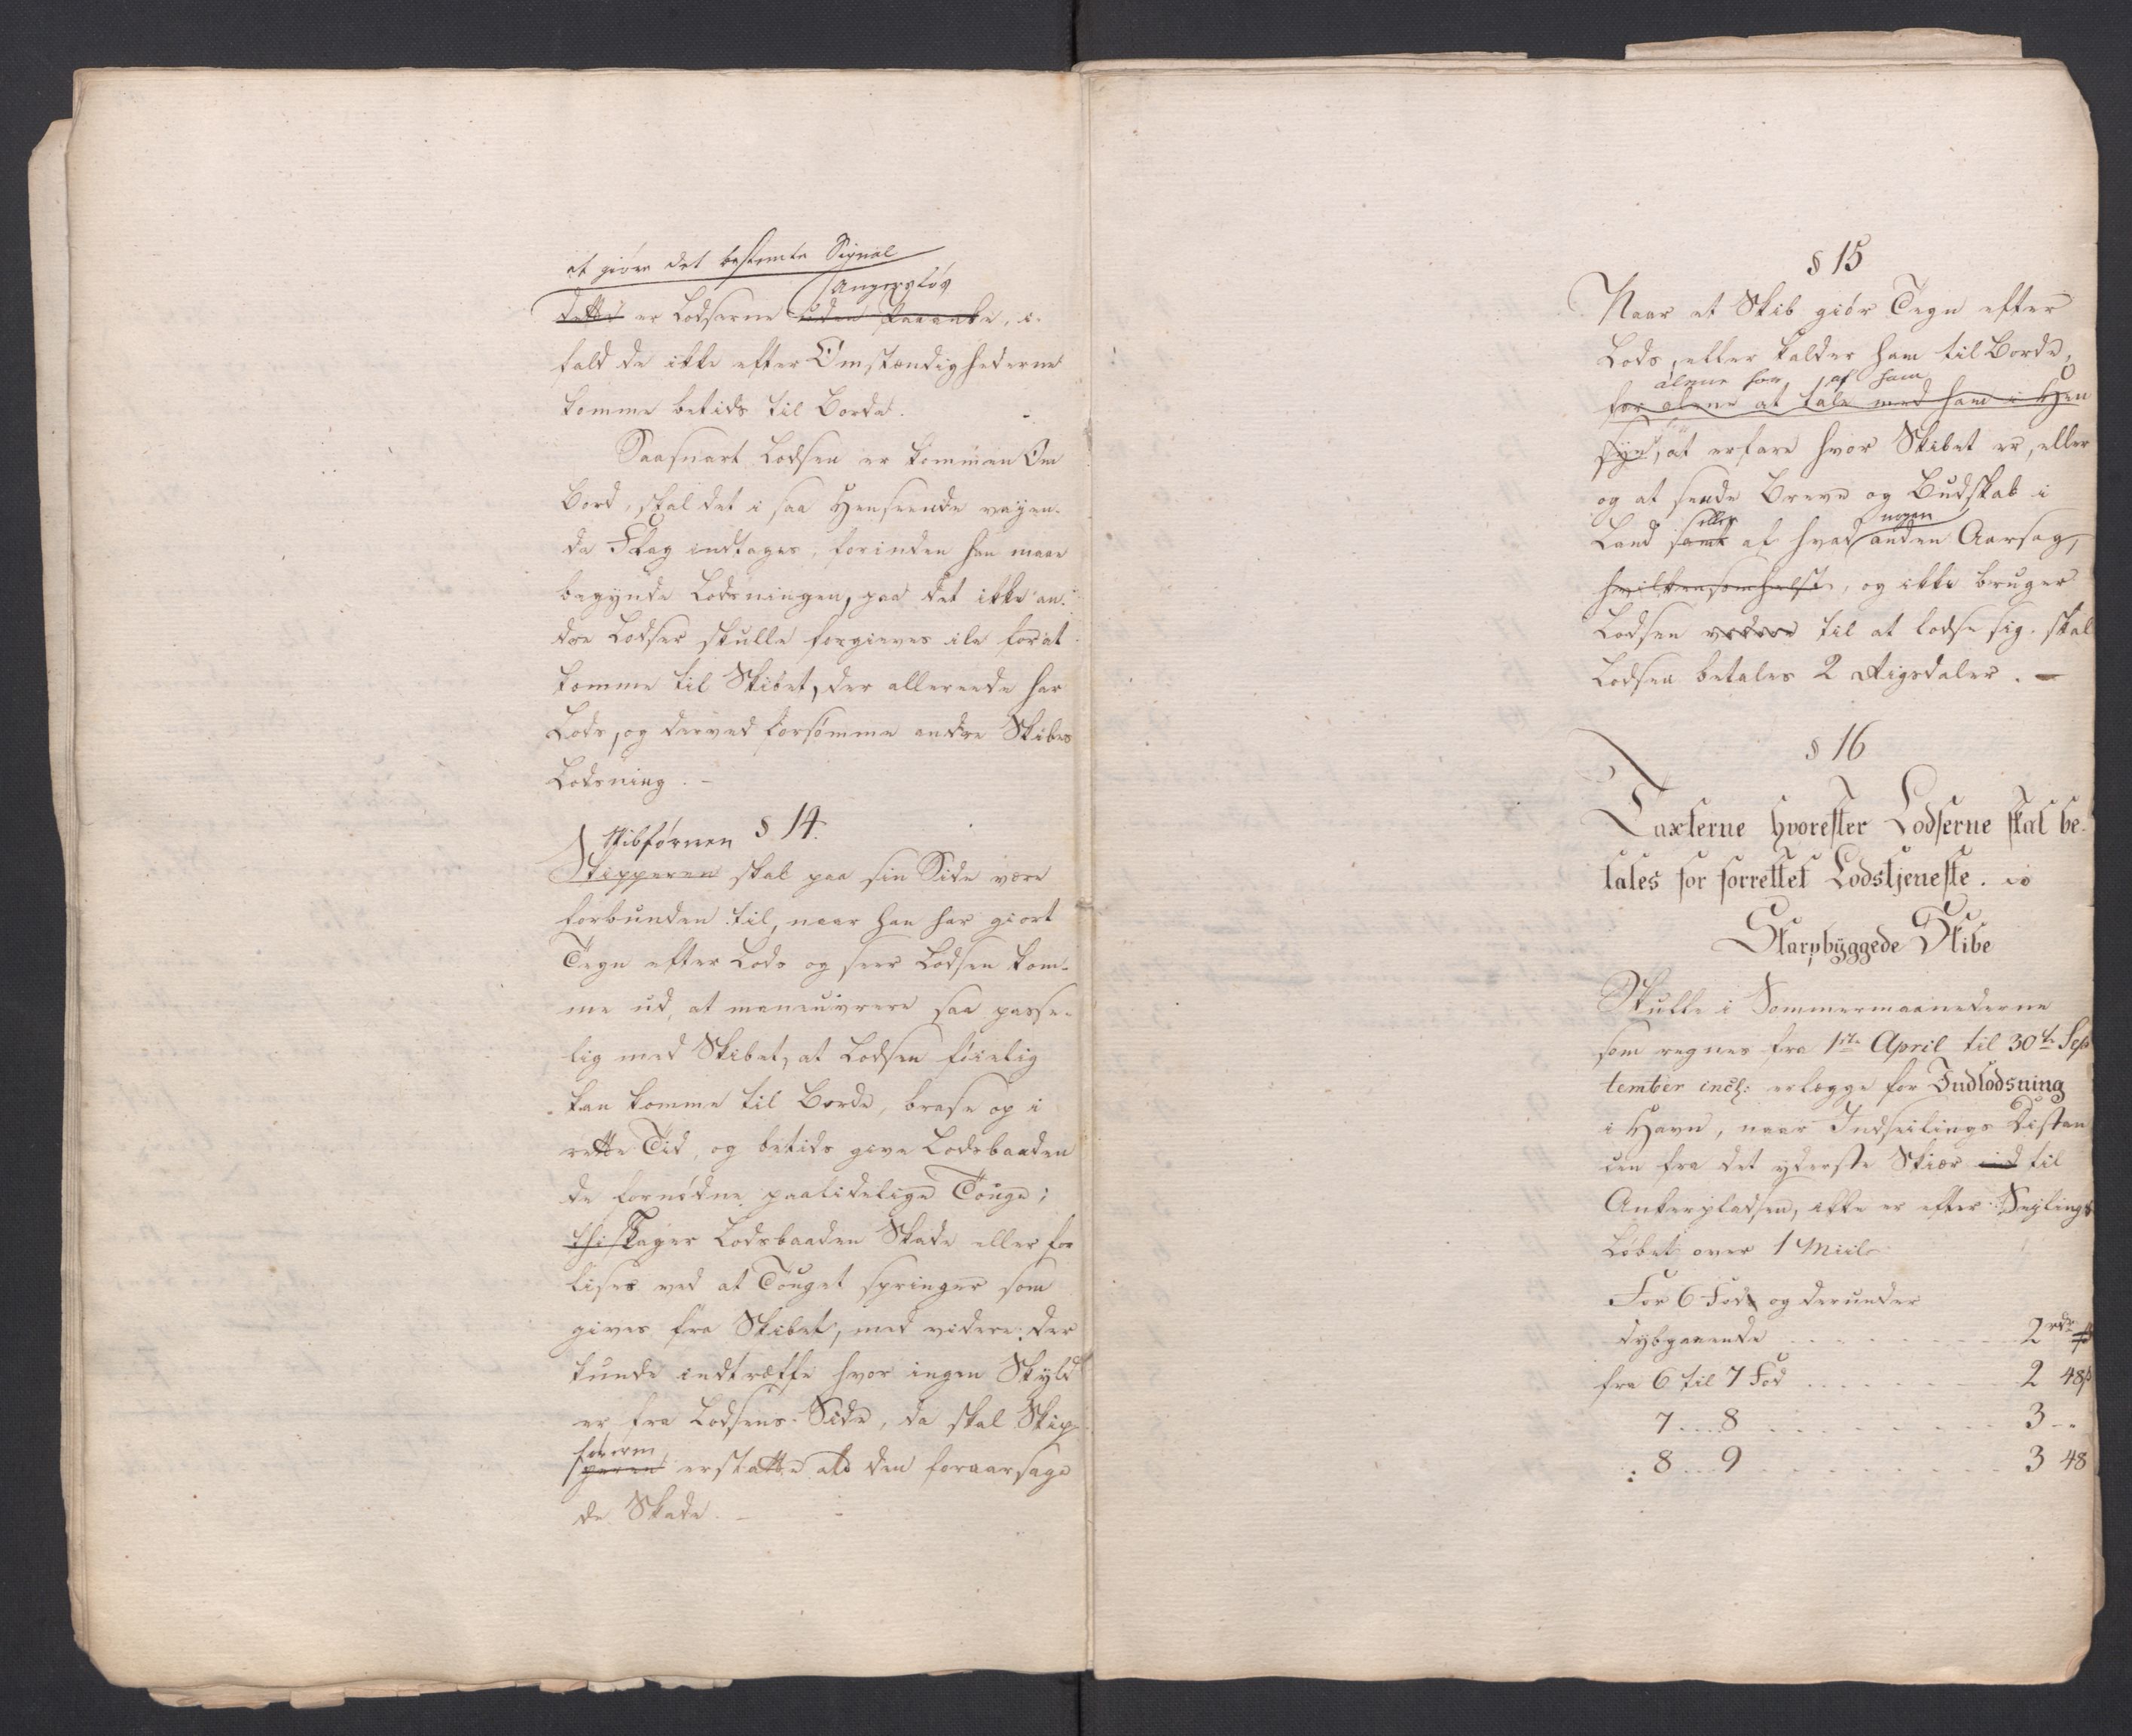 at giøre det bestemte Signal
Angersløs
dette er Lodserne uden Paaanke, i-
fald de ikke efter Omstændighederne
komme betids til Borde.
Saasnart Lodsen er kommen Om
Bord, skal det i saa Henseende vayen-
de Flag indtages, forinden han maae
begynde Lodsningen, paa det ikke an-
dre Lodser skulle forgieves ile for at
komme til Skibet, der allereede har
Lods, og derved forsømme andre Skibes
Lodsning. -
§ 14.
Skibføreren
Skipperen skal paa sin Side være
forbunden til, naar han har giort
Tegn efter Lods og seer Lodsen kom-
me ud, at maneuvrere saa passe-
lig med Skibet, at Lodsen føielig
kan komme til Borde, brase op i
rette Tid, og betids give Lodsbaaden
de fornødne paalidelige Touge;
thi tager Lodsbaaden Skade eller for
lises ved at Touget springer som
gives fra Skibet, med videre der
kunde indtræffe hvor ingen Skyld
er fra Lodsens Side, da skal Skip-
føreren
peren erstatte ald den foraarsage
de Skade. -
§ 15
Naar et Skib giør Tegn efter
Lods, eller kalder ham til Borde,
alene for af ham
for alene at tale med ham i Hen
syn, at erfare hvor Skibet er, eller
og at sende Breve og Budskab i
eller nogen
Land samt af hvad anden Aarsag,
hvilkensomhelst, og ikke bruger
Lodsen videre til at lodse sig, skal
Lodsen betales 2 Rigsdaler. -
§ 16
Taxterne hvorefter Lodserne skal be-
tales for forrettet Lodstjeneste.
Skarpbyggede Skibe
Skulle i Sommermaanederne
som regnes fra 1ste April til 30te Sep
tember incl: erlægge for Indlodsning
i Havn, naar Indseilings Distan
cen fra det yderste Skiær ind til
Ankerpladsen, ikke er efter Seilings
Løbet over 1 Miil
For 6 Fods og derunder
dybgaaende . . . . . . 2 rdr ß
fra 6 til 7 Fod . . . . . . 2 48ß
7 .... 8 . . . . . . 3 --
8 ... 9 . . . . . . 3 48